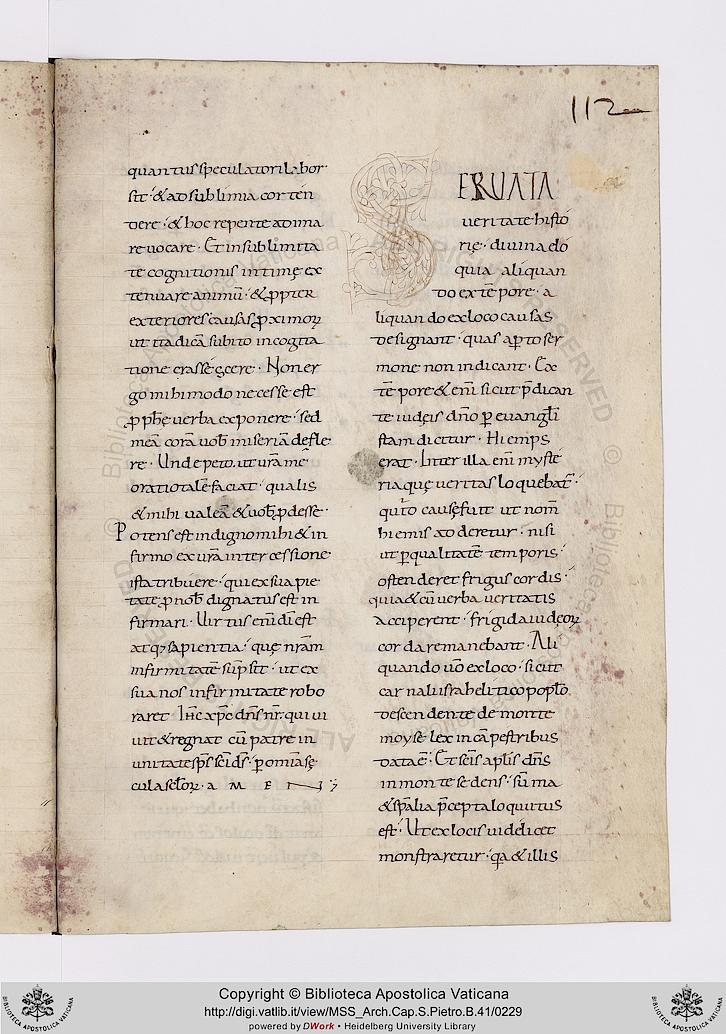 112
quantus speculatori labor
sit · & ad sublimia cor ten
dere · & hoc repente ad ima
revocare · Et in sublimita
te cognitionis intimę ex
tenuare animū · & ꝓpter
exteriores causas ꝓximorꝝ
ut ita dicā subito in cogita
tione crassescere · Non er
go mihi modo necesse est
ꝓphę verba exponere · sed
meā corā vob miseriā defle
re · Unde peto, ut vrām
oratio talē faciat · qualis
& mihi valeā & vob ꝓdesse ·
Potens est indigno mihi & in
firmo ex vrā intercessione
ista tribuere · qui ex sua pie
tate ꝓ nob dignatus est in
firmari · Virtus eni dī est
atq; sapientia · quę nrām
infirmitatē sūpsit · ut ex
sua nos infirmitate robo
raret · Ihc xpc dns nr · qui vi
vit & regnat cū patre in
unitate sps sci ds · ꝑ omīa sę
cula sclorꝝ · a m e n
SERVATA
veritate histo
rię · divina elo
quia aliquan
do ex tēpore · a
liquando ex loco causas
designant · quas aꝑto ser
mone non indicant · Ex
tēpore & enī sicut p̄dican
te iudęis dno ꝑ evangli
stam dicitur · Hiemps
erat · Inter illa enī myste
ria quę veritas loquebat ·
quid causę fuit ut nom
hiemis adderetur · nisi
ut ꝑ qualitatē temporis ·
ostenderet frigus cordis ·
quia & cū verba veritatis
acciperent · frigida iudęorꝝ
corda remanebant · Ali
quando vō ex loco · sicut
carnali israhelitico poplo
descendente de monte
moyse lex in cāpestribus
data ē · Et scis aplis dns
in monte sedens · sūma
& spalia p̄cepta loquutus
est · Ut ex locis videlicet
monstraretur · qa & illis
Copyright © Biblioteca Apostolica Vaticana
http://digi.vatlib.it/view/MSS_Arch.Cap.S.Pietro.B.41/0229
powered by DWork • Heidelberg University Library